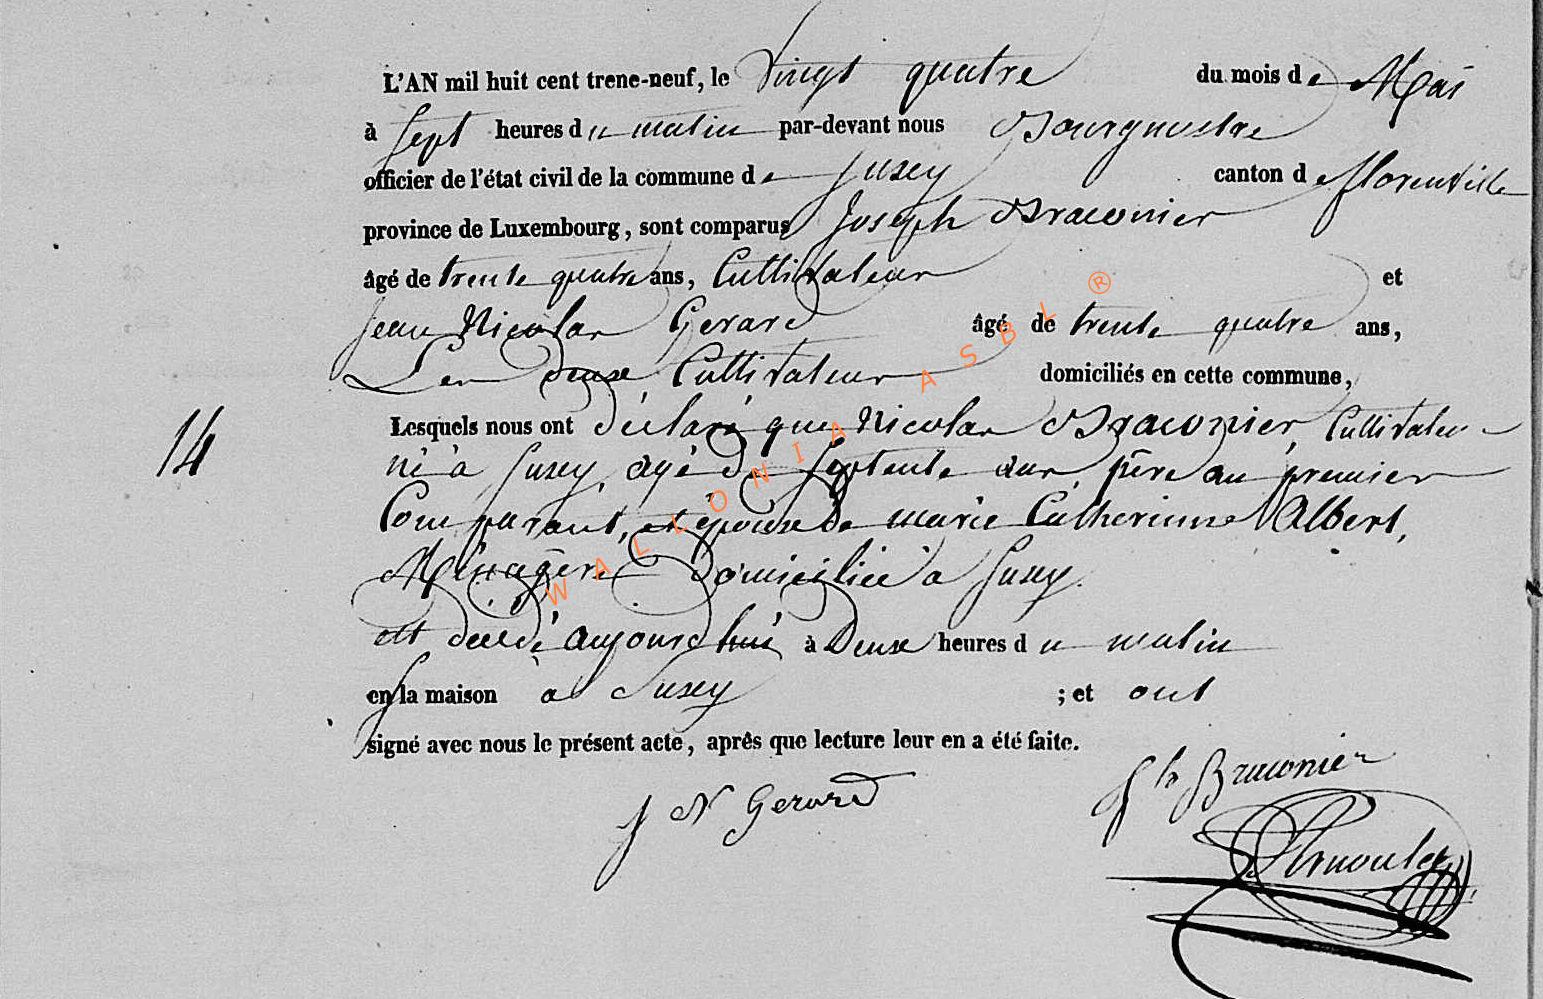 L'AN mil huit cent trene-neuf, le vingt quatre du mois de Mai
à Sept heures du matin par-devant nous Bourgmestre
officier de l'état civil de la commune de Suxey canton de florenville
province de Luxembourg, sont comparus Joseph Braconier
âgé de trente quatre ans, Cultivateur et
Jean Nicolas Gerard âgé de trente quatre ans,
Les deux Cultivateurs domiciliés en cette commune,
14
Lesquels nous ont déclaré que Nicolas Braconier, Cultivateur
né à Suxey, agé de septente ans, père au premier
Comparant, et époux de marie Catherinne Albert,
Ménagère domiciliée à Suxey.
est décédé aujourd'hui à Deux heures du matin
en la maison à Suxey ; et ont
signé avec nous le présent acte, après que lecture leur en a été faite.
J N Gerard
Jh Braconier
WALLONIA ASBL ®